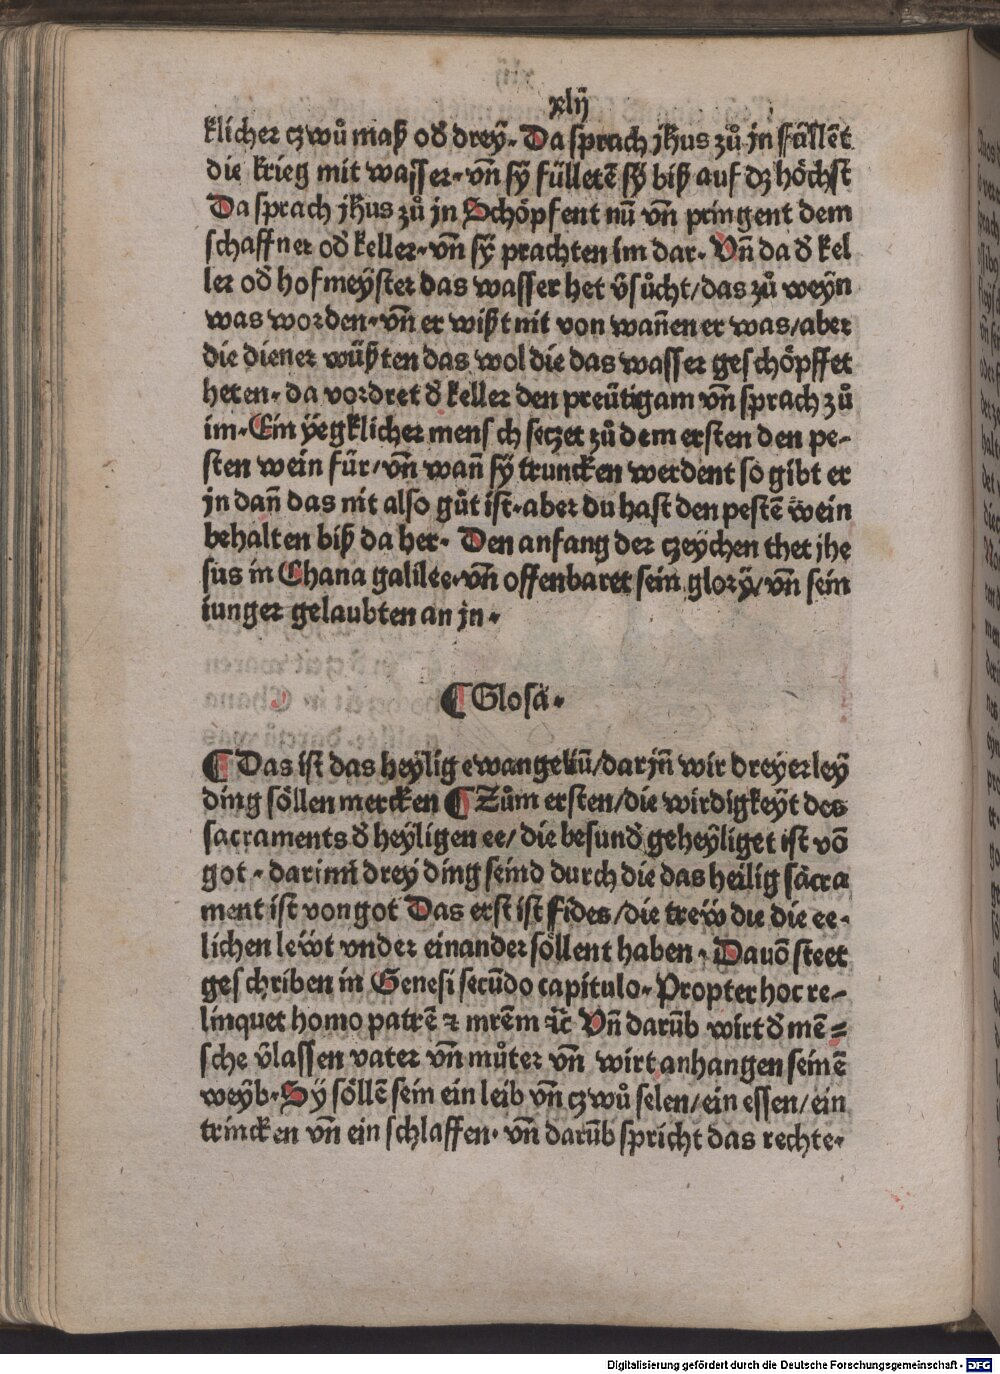 xlij
klicher czwů maß oď drey̋. Da sprach jhus zů jn Füllēt
die krieg mit wasser. vn̄ sy̋ fülletē sy̋ biß auf dz höchst
Da sprach jhus zů jn Schöpfent nū vn̄ pringent dem
schaffner oď keller. vn̄ sy̋ prachten im dar. Vn̄ da ď kel
ler oď hofmey̋ster das wasser het v̄sůcht/das zů wey̋n
was worden. vn̄ er wißt nit von wan̄en er was/aber
die diener wüßten das wol die das wasser geschöpffet
heten. da vordret ď keller den preütigam vn̄ sprach zů
im. Ein y̋egklicher mensch seczet zů dem ersten den pe-
sten wein für/vn̄ wan̄ sy̋ truncken werdent so gibt er
jn dan̄ das nit also gůt ist. aber du hast den pestē wein
behalten biß da her. Den anfang der czey̋chen thet jhe
sus in Chana galilee. vn̄ offenbaret sein glory̋/vn̄ sein
iunger gelaubten an jn.
¶ Glosä.
¶ Das ist das hey̋lig ewangeliū/darjn̄ wir dreyerley̋
ding söllen mercken ¶ Zům ersten/die wirdigkey̋t des
sacraments ď hey̋ligen ee/die besunď gehey̋liget ist vō
got. darinn̄ drey ding seind durch die das heilig sacra
ment ist von got Das erst ist fides/die trew̋ die die ee-
lichen lew̋t vnder einander söllent haben. Dauō steet
geschriben in Genesi secūdo capitulo. Propter hoc re-
linquet homo patrē ⁊ mrēm ⁊c̄ Vn̄ darūb wirt ď mē=
sche v̄lassen vater vn̄ můter vn̄ wirt anhangen seinē
wey̋b. Sy̋ söllē sein ein leib vn̄ czwů selen/ein essen/ein
trincken vn̄ ein schlaffen. vn̄ darūb spricht das rechte.
Digitalisierung gefördert durch die Deutsche Forschungsgemeinschaft - DFG